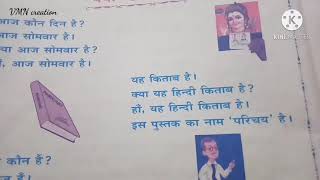 VMN creation
आज कौन दिन है?
आज सोमवार है।
क्या आज सोमवार है?
हाँ, आज सोमवार है।
यह किताब है।
क्या यह हिन्दी किताब है?
हाँ, यह हिन्दी किताब है।
इस पुस्तक का नाम 'परिचय' है।
कौन हैं?
हैं।